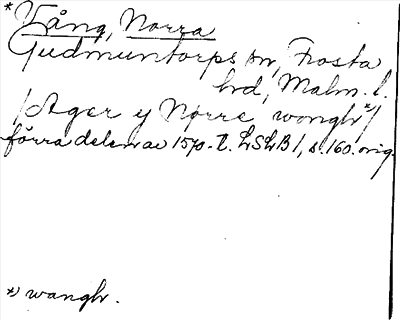 *Vång, Norra
Gudmuntorps sn, Frosta
hd, Malm. l.
/Ager y Nørre wongh*)/
förra delen av 1570-t. LSLB 1, s. 160. orig.
*) wangh.